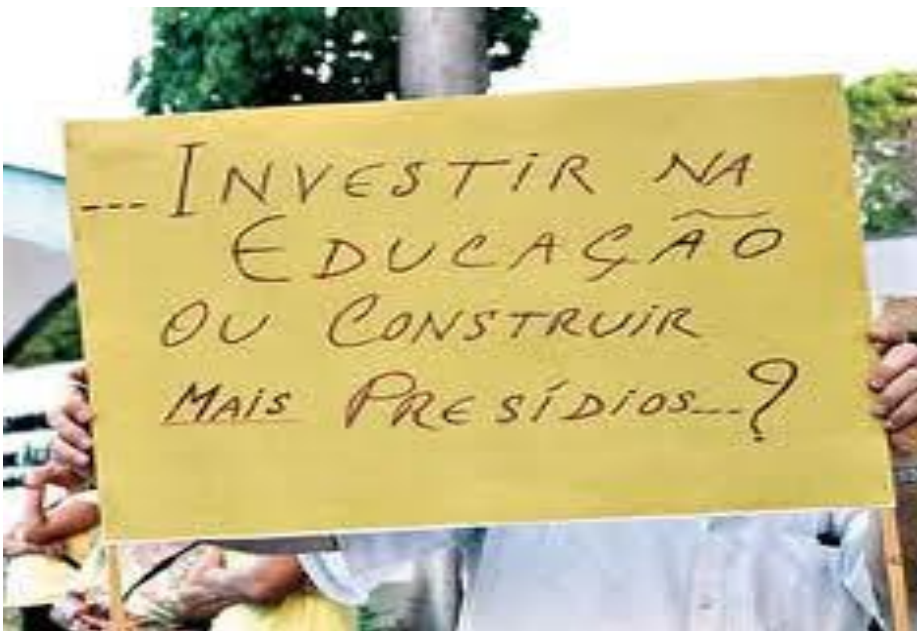 ---INVESTIR NA
EDUCAÇÃO
OU CONSTRUIR
MAIS PRESÍDIOS---?